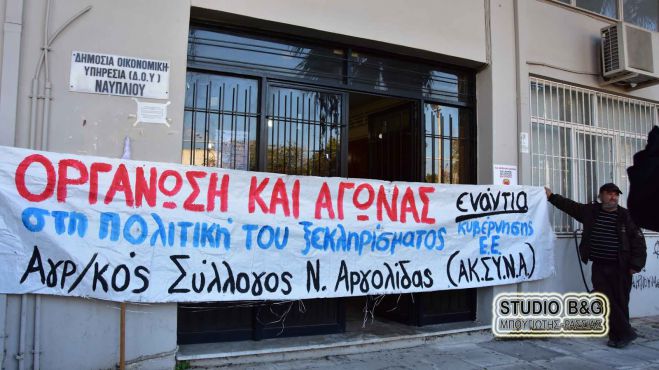 ΔΗΜΟΣΙΑ ΟΙΚΟΝΟΜΙΚΗ
ΥΠΗΡΕΣΙΑ (Δ.Ο.Υ)
ΝΑΥΠΛΙΟΥ
ΟΡΓΑΝΩΣΗ ΚΑΙ ΑΓΩΝΑΣ ενάντια
στη πολιτική του ξεκληρίσματος κυβέρνησης Ε.Ε.
Αγρ/κός Σύλλογος Ν. Αργολίδας (ΑΚ.ΣΥ.Ν.Α)
STUDIO B&G
ΜΠΟΥΓΙΩΤΗΣ-ΡΑΣΣΙΑΣ